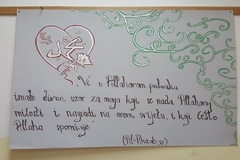 محمد
Vi u Allahovom poslaniku
imate divan uzor za onoga koji se nada Allahovoj
milosti i nagradi na onom svijetu, i koji često
Allaha spominje.